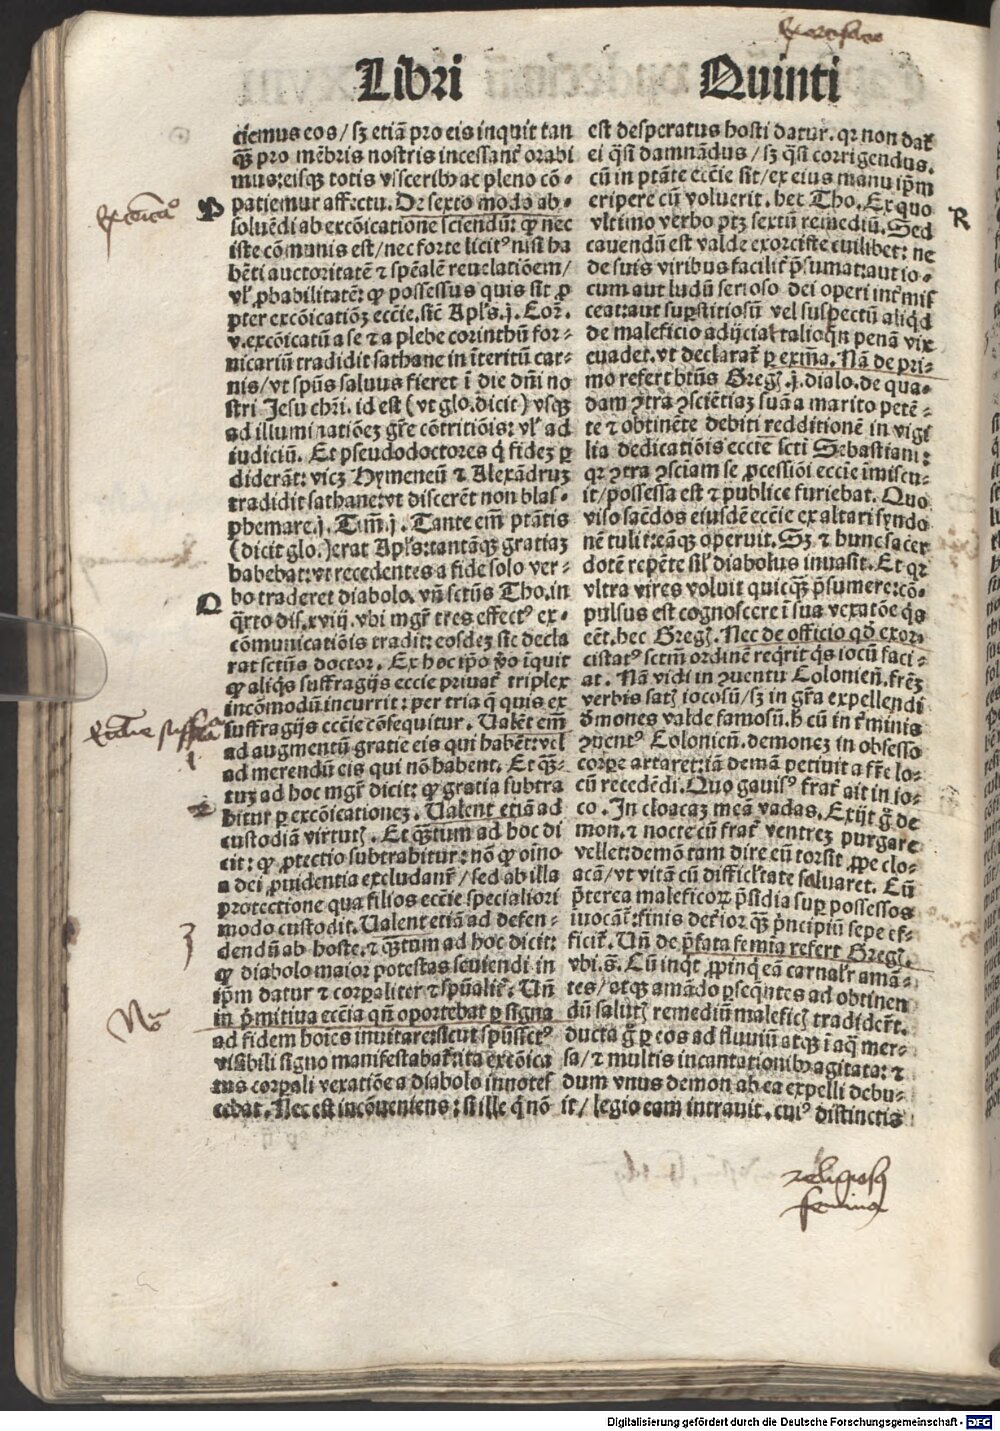 Libri Quinti
ciemus eos / sꝫ etiā pro eis inquit tan
qꝫ̄ pro mēbris nostris incessanť orabi
mus: eisqꝫ totis visceribꝰ ac pleno cō⸗
patiemur affectu. De sexto modo ab⸗
soluēdi ab excōicatione sciendū: ꝙ nec
iste cōmunis est / nec forte licitꝰ nisi ha
bēti auctoritatē ⁊ spēalē reuelatiōem /
vľ ꝓbabilitatē: ꝙ possessus quis sit ꝓ
pter excōicatiōꝫ eccīe. sic̄ Apľs. j. Coꝝ.
v. excōicatū a se ⁊ a plebe corinthū for⸗
nicariū tradidit sathane in īteritū car⸗
nis / vt spūs saluus fieret ī die dn̄i no
stri Jesu chr̄i. id est (vt glo. dicit) vsqꝫ
ad illuminatiōeꝫ gr̄e cōtritiōis: vľ ad
iudiciū. Et pseudodoctores q̇ fideꝫ ꝑ
diderāt: vicꝫ Hymeneū ⁊ Alexādruꝫ
tradidit sathane: vt discerēt non blas⸗
phemare. j. Tim̄. j. Tante em̄ ptātis
(dicit glo.) erat Apľs: tantāqꝫ gratiaꝫ
habebat: vt recedentes a fide solo ver⸗
bo traderet diabolo. vn̄ sctūs Tho. in
q̈rto dis. xviij. vbi mgr̄ tres effectꝰ ex⸗
cōmunicatiōis tradit: eosdeꝫ sic̄ decla
rat sctūs doctor. Ex hoc ip̄o ꝟo īquit
ꝙ aliq̇s suffragijs eccīe priuať triplex
incōmodū incurrit: per tria q̄ quis ex
suffragijs eccīe cōsequitur. Ualēt em̄
ad augmentū gratie eis qui habēt: vel
ad merendū eis qui nō habent. Et qꝫ̄⸗
tuꝫ ad hoc mgr̄ dicit: ꝙ gratia subtra
hitur ꝑ excōicationeꝫ. Ualent etiā ad
custodiā virtutꝭ. Et qꝫ̄tum ad hoc di
cit: ꝙ ꝓtectio subtrahitur: nō ꝙ oīno
a dei ꝓuidentia excludanť / sed ab illa
protectione qua filios eccīe specialiori
modo custodit. Ualent etiā ad defen⸗
dendū ab hoste. ⁊ qꝫ̄tum ad hoc dicit:
ꝙ diabolo maior potestas seuiendi in
ip̄m datur ⁊ corꝑaliter ⁊ spūaliť. Un̄
in p̄mitiua eccīa qn̄ oportebat ꝑ signa
ad fidem hoīes inuitare: sicut spūssctꝰ
visibili signo manifestabať: ita excōica
tus corpali vexatiōe a diabolo innotes
cebat. Nec est incōueniens: si ille q̇ nō
est desperatus hosti datur. qꝛ non dať
ei q̈si damnādus / sꝫ q̈si corrigendus.
cū in ptāte eccīe sit / ex eius manu ip̄m
eripere cū voluerit. hec Tho. Ex quo
vltimo verbo ptꝫ sextū remediū. Sed
cauendū est valde exorciste cuilibet: ne
de suis viribus faciliť p̄sumat: aut io⸗
cum aut ludū serioso dei operi inťmis
ceat: aut suꝑstitiosū vel suspectū aliqd̄
de maleficio adijciat: talioqn̄ penā vix
euadet. vt declarať ꝑ exm̄a. Nā de pri⸗
mo refert btūs Greg̃. j. dialo. de qua⸗
dam ꝯtra ꝯsciētiaꝫ suā a marito petē⸗
te ⁊ obtinēte debiti redditionē in vigi
lia dedicatiōis eccīe sctī Sebastiani:
qꝛ ꝯtra ꝯsciam se ꝓcessiōi eccīe īmiscu⸗
it / possessa est ⁊ publice furiebat. Quo
viso sacḗdos eiusdē eccīe ex altari syndo
nē tulit: eāqꝫ operuit. Sꝫ ⁊ hunc sacer
dotē repēte siľ diabolus inuasit. Et qꝛ
vltra vires voluit quicqꝫ p̄sumere: cō⸗
pulsus est cognoscere ī sua vexatōe q̇s
eēt. hec Greg̃. Nec de officio qd̄ exor⸗
cistatꝰ sctm̄ ordinē req̇rit q̇s iocū faci⸗
at. Nā vidi in ꝯuentu Colonien̄. fr̄eꝫ
verbis satꝭ iocosū / sꝫ in gr̄a expellendi
d̄mones valde famosū. h̄ cū in ťminis
ꝯuentꝰ Colonien̄. demoneꝫ in obsesso
corꝑe artaret: iā demā petiuit a fr̄e lo⸗
cū recedēdi. Quo gauisꝰ frať ait in io⸗
co. In cloacaꝫ meā vadas. Exijt g̊ de
mon. ⁊ nocte cū frať ventreꝫ purgare
vellet: demō tam dire eū torsit ꝓpe clo⸗
acā / vt vitā cū difficľtate saluaret. Cū
p̄terea maleficoꝝ p̄sidia suꝑ possessos
īuocāť: finis deťior qꝫ̄ p̄ncipiū sepe ef⸗
ficiť. Un̄ de p̄fata femīa refert Greg̃.
vbi. s̄. Cū inq̇t ꝓpinq̇ eā carnaľr amā⸗
tes / atqꝫ amādo ꝑseq̄ntes ad obtinen
dū salutꝭ remediū maleficꝭ tradiderť.
ducta g̊ ꝑ eos ad fluuiū atqꝫ ī aq̄ mer⸗
sa / ⁊ multis incantationibꝰ agitata: ⁊
dum vnus demon ab ea expelli debu⸗
it / legio eam intrauit. cuiꝰ distinctis
P
Q
R
religiosꝭ
femina